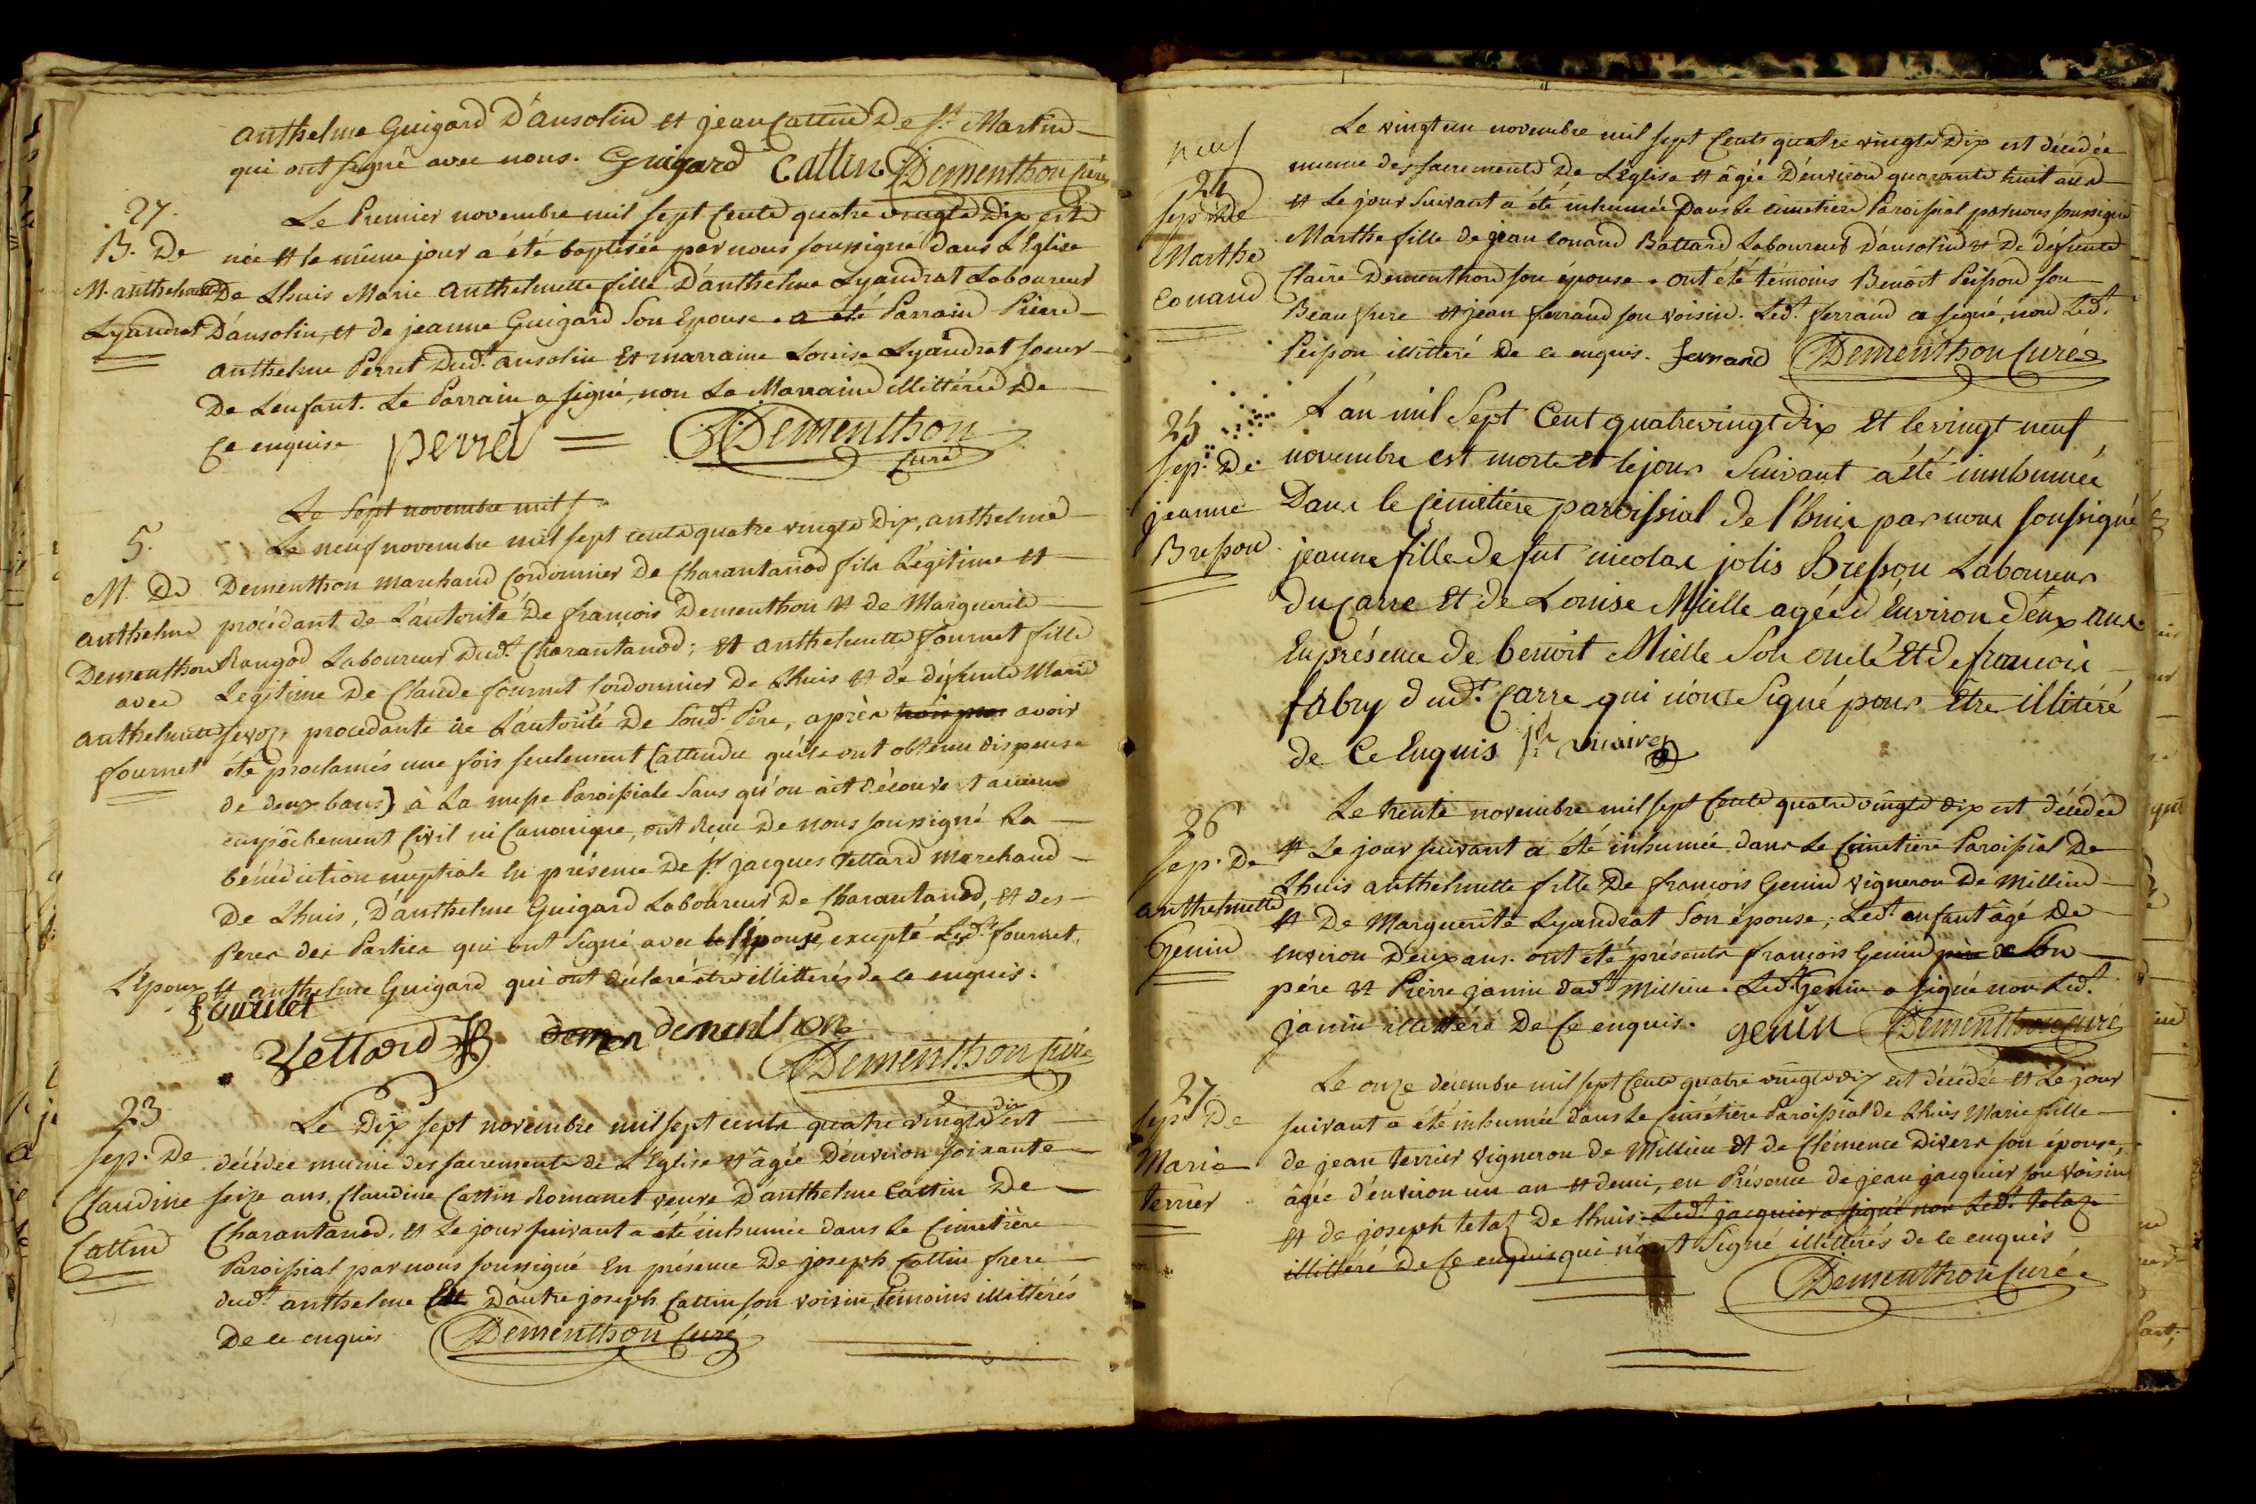 anthelme Guigard D'ansolin et jean Cattin De St. Martin
qui ont signé avec nous. Guigard Cattin Dementhon curé
27.
B. De
M. anthelmette
Lyandrat
Le Premier novembre mil sept Cents quatre vingts Dix est
née et le même jour a été baptisée par nous soussigné dans L'Eglise
De Lhuis Marie anthelmette fille D'anthelme Lyandrat Laboureur
D'ansolin, et de jeanne Guigard son Epouse. a été Parrain Pierre
anthelme Perret Dudt. ansolin et marraine Louise Lyandrat soeur
De L'enfant. Le Parrain a signé, non La Marraine illittérée De
ce enquise perret Dementhon
curé
Le sept novembre mil s
5.
M. De
anthelme
Dementhon
avec
anthelmette
fournet
Le neuf novembre mil sept cents quatre vingts Dix, anthelme
Dementhon marchand Cordonnier De Charantanod fils Légitime et
procédant de L'autorité De françois Dementhon et de Marguerite
Rougod Laboureur Dudt. Charantanod; et anthelmette fournet fille
Legitime De Claude fournet Cordonnier De Lhuis et de défunte Marie
procedante de L'autorité De Soudt. Pere, après avoir
été proclamés une fois seulement (attendu qu'ils ont obtenu dispense
de deux bans) à La messe Paroissiale sans qu'on ait découvert aucun
empêchement Civil ni Canonique, ont Reçu De nous soussigné La
bénédiction nuptiale En présence De Sr. jacques Tettard Marchand
De Lhuis, D'anthelme Guigard Laboureur De Charantanod, et des
Peres des Parties qui ont signé avec l'Epouse, excepté Ledt. fournet,
L'Epoux et anthelme Guigard qui ont déclaré être illittérés de ce enquis.
fournet
Tettard demen dementhon
Dementhon curé
23
Sep. De
Claudine
Cattin
Le Dix sept novembre mil sept cents quatre vingts dix est
décédée munie des sacrements de L'Eglise et âgée D'environ soixante
seize ans, Claudine Cattin Romanet veuve D'anthelme Cattin De
Charantanod, et Le jour suivant a été inhumée dans Le Cimetière
Paroissial par nous soussigné En présence De joseph Cattin frere
dudt. anthelme Et D'autre joseph Cattin son voisin, témoins illittérés
De ce enquis Dementhon curé
neuf
24
Sep. De
Marthe
Conand
Le vingt un novembre mil sept Cents quatre vingts Dix est décédée
munie des sacrements De L'Eglise et âgée D'environ quarante huit ans
et Le jour suivant a été inhumée Dans Le cimetiere Paroissial par nous soussigné
Marthe fille de jean Conand Battard Laboureur D'ansolin et De défunte
Claire Dementhon son épouse. ont été témoins Benoît Peisson son
Beau frere et jean ferrand son voisin. Ledt. ferrand a signé, non Ledt.
Peisson illittéré De ce enquis. ferrand Dementhon curé
25
Sep. De
jeanne
Bresson
L'an mil Sept Cent quatrevingt dix Et le vingt neuf
novembre est morte et le jour suivant a été innhumée
Dans le Cimetière paroissial de l'huis par nous soussigné
jeanne fille de fut nicolas jolis Bresson Laboureur
du Carre Et de Louise Mielle agée d'Environ deux ans
En présence de benoit Mielle son oncle Et de françois
fabry dudt. Carre qui n'ont Signé pour être illitéré
de ce Enquis vicaire
26
Sep. De
anthelmette
Genin
Le trente novembre mil sept Cents quatre vingts dix est décédée
et Le jour suivant a été inhumée dans Le Cimetiere Paroissial De
Lhuis anthelmette fille De françois Genin vigneron De Millieu
et De Marguerite Lyandrat Son épouse; Ledt. enfant âgé De
environ Deux ans. ont été présents françois Genin père De Son
pére et Pierre janin dudt. Millieu. Ledt. Genin a signé non Ledt.
janin illittéré De ce enquis. genin Dementhon curé
27
Sep. De
Marie
terrier
Le onze décembre mil sept Cents quatre vingts dix est décédée et Le jour
suivant a été inhumée dans Le Cimétière Paroissial de Lhuis Marie fille
de jean terrier vigneron de Millieu et de Clémence Divers son épouse,
âgée d'environ un an et demi, en Présence de jean jacquier son voisin
et de joseph telaz De Lhuis. Ledt. jacquier a signé non Ledt. telaz
illittéré De Ce enquis qui n'ont Signé illittérés de ce enquis
Dementhon curé